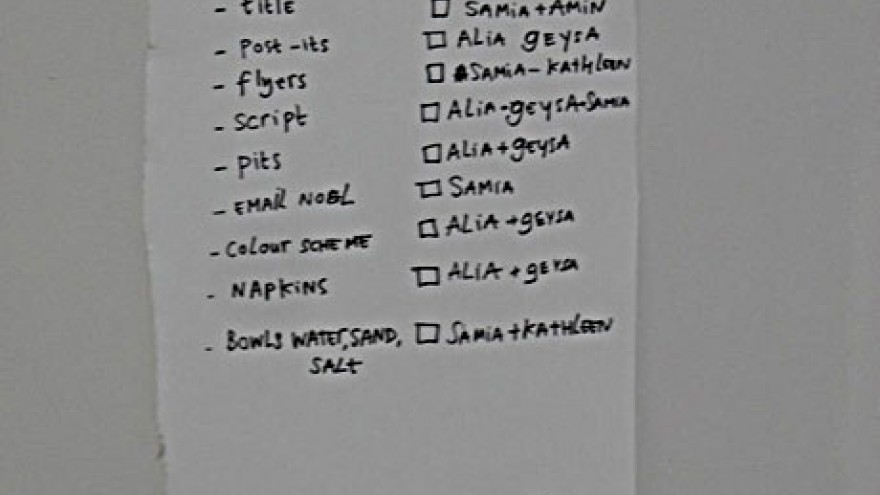 - title □ SAMIA + AMIN
- Post-its □ ALIA geysA
- flyers □ SAMIA - KAthlEEN
- script □ ALIA - geysA - SAMIA
- pits □ ALIA + geysA
- EMAIL NOEL □ SAMIA
- Colour SCHEME □ ALIA + geysA
- NAPKINS □ ALIA + geysA
- BOWLS WATER, SAND, □ SAMIA + KATHLEEN
SALT